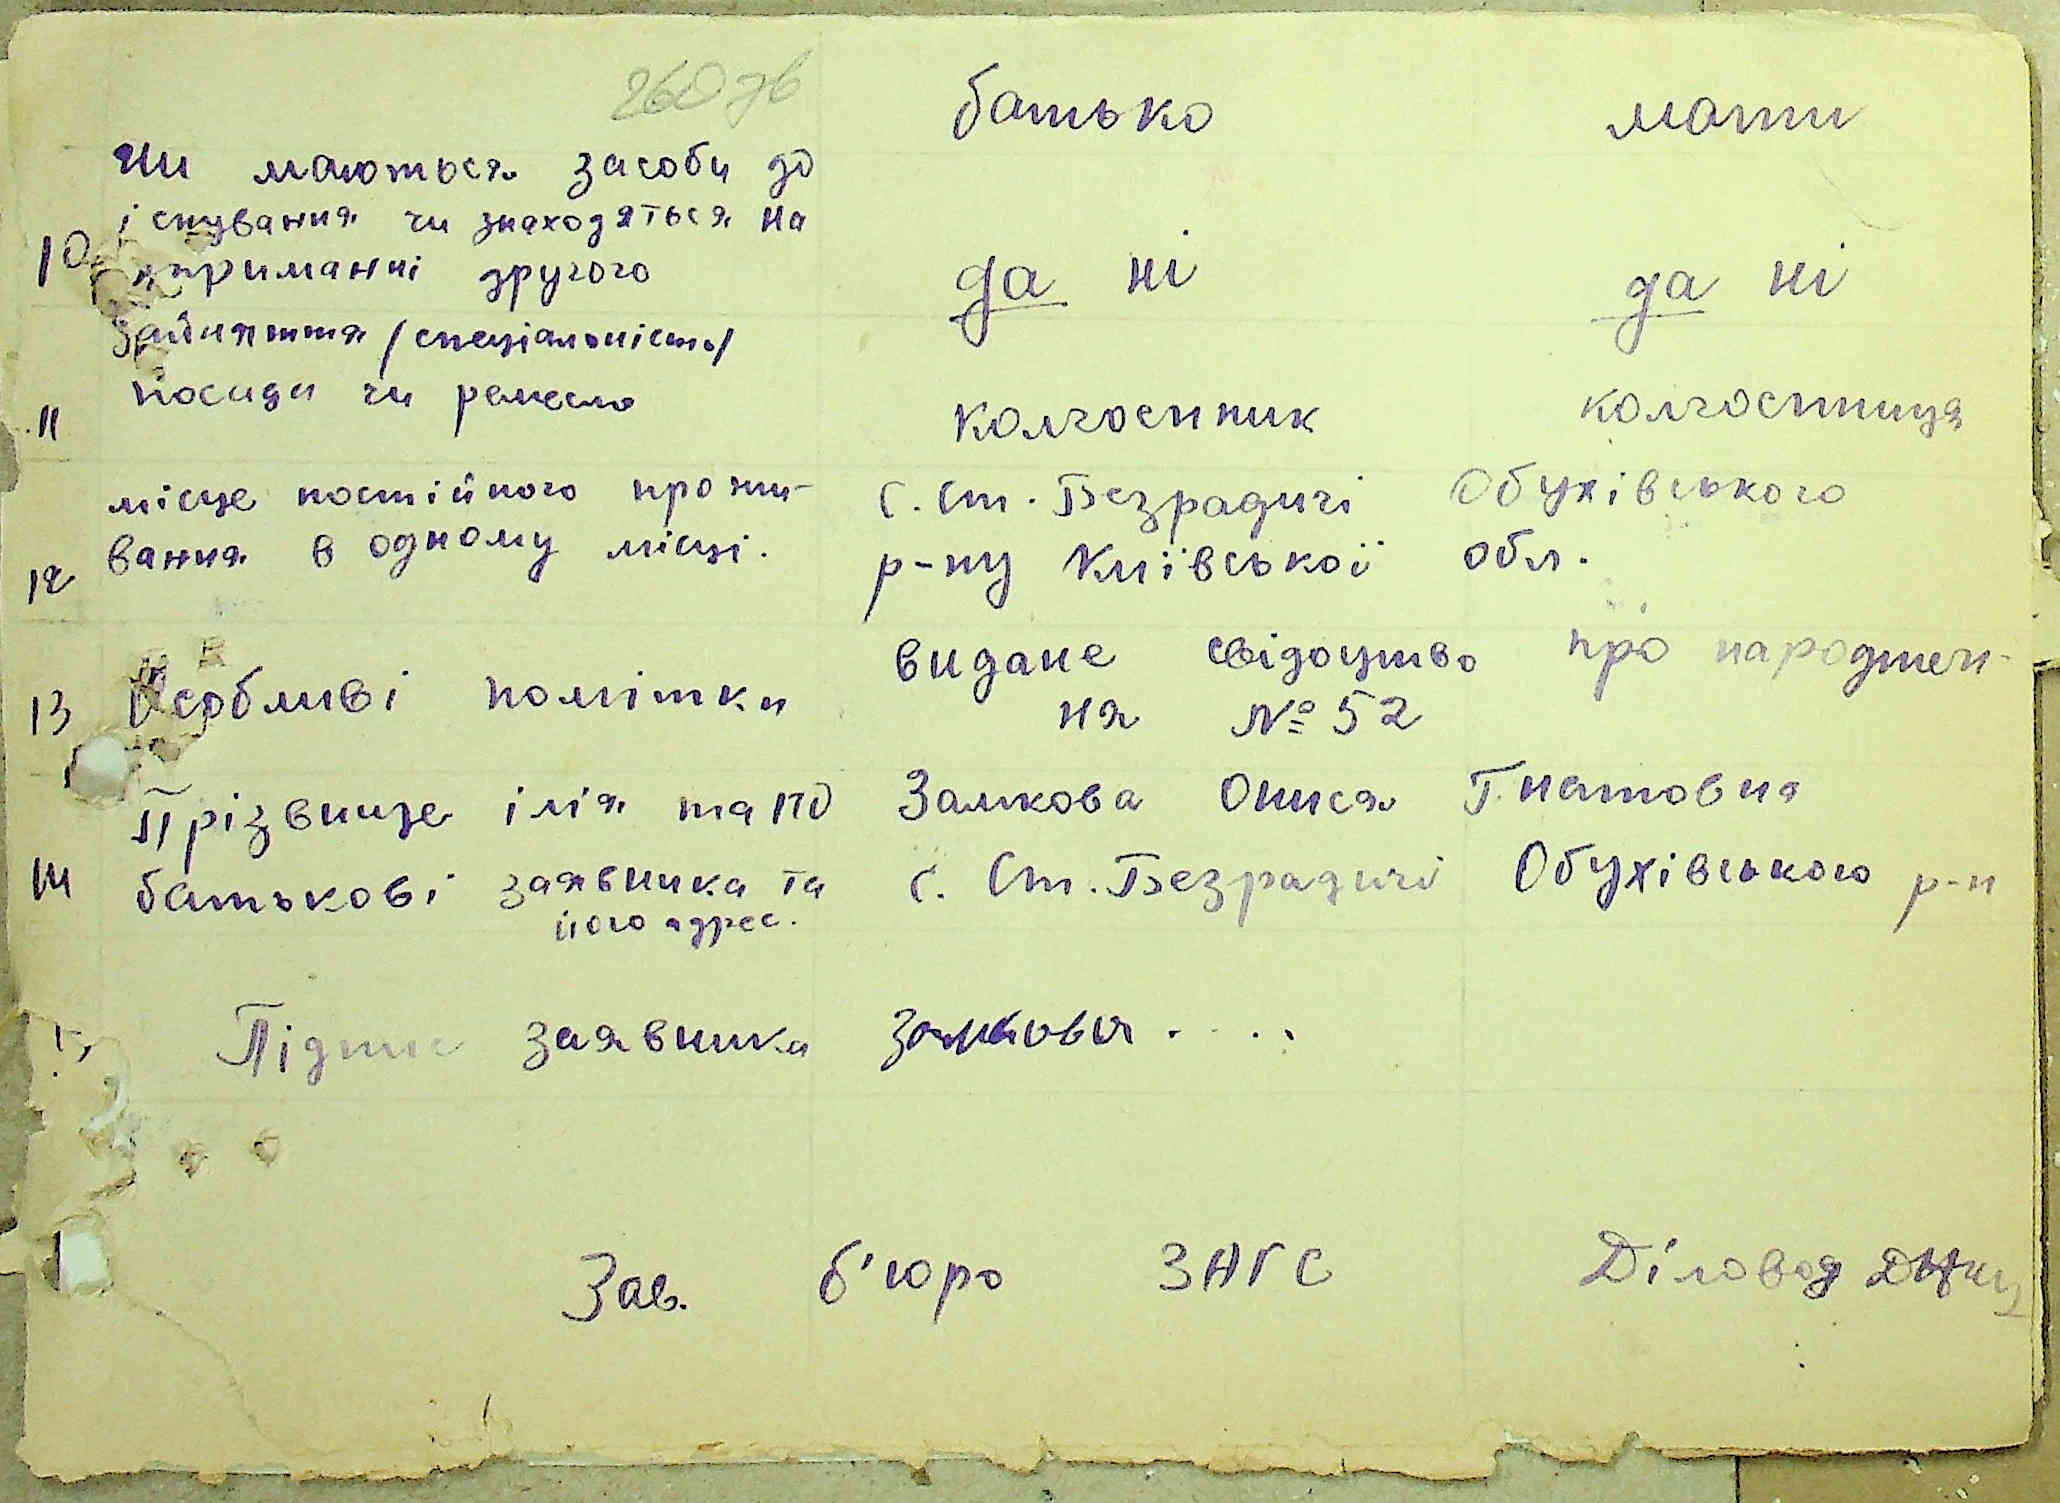 260 зв
батько мати
Чи маються засоби до
існування чи знаходяться на
10 утриманні другого да ні да ні
Зайняття /спеціальність/
посади чи ремесло
11 колгоспник колгоспниця
місце постійного прожи- с. Ст. Безрадичі Обухівського
12 вання в одному місці. р-ну Київської обл.
видане свідоцтво про народжен-
13 Особливі помітки ня № 52
Прізвище імя та по Замкова Онися Гнатовна
14 батькові заявника та с. Ст. Безрадичі Обухівського р-н
його адрес.
Підпис заявника Замкова . . . .
Зав. б'юро ЗАГС Діловод